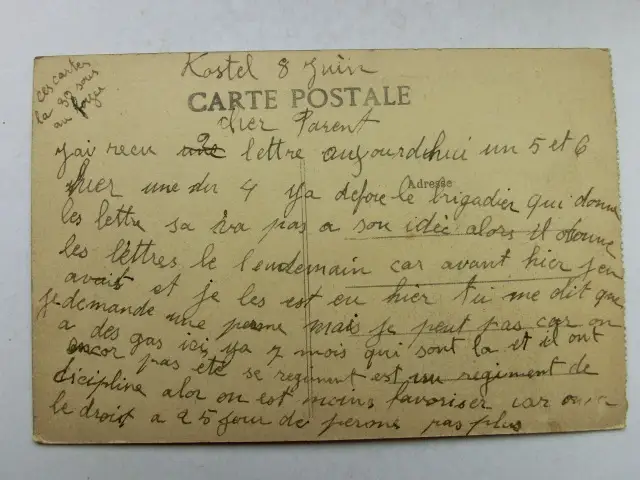 ces cartes
la 30 sous
au foyer
Kastel 8 Juin
CARTE POSTALE
cher Parent
j'ai recu 2 lettre aujourdehui un 5 et 6
hier une du 4 ya defoie le brigadier qui donne
Adresse
les lettre sa va pas a son idéé alors il donne
les lèttres le lendemain car avant hier j'en
avait et je les est eu hier tu me dit que
je demande une perme mais je peut pas car on
a des gas ici ya 7 mois qui sont la et il ont
encor pas eté se regiment est un regiment de
discipline alor on est moins favoriser car on a
le droit a 25 jour de perme pas plus